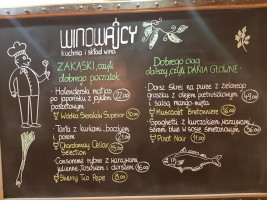 WINOWAJCY
kuchnia i skład wina
ZAKĄSKI, czyli
dobrego początek
Holenderski matjas
po japońsku z jajkiem
22.00
Wódka Sieraków Superior 10.00
Tarta z kurkami, boczkiem
i porem 21.00
Chardonnay Cellar
Selection
Consomme rybne z warzywami
julienne, łososiem i 16.00
Sherry Tio Pepe 13.00
Dobrego ciąg
dalszy, czyli DANIA GŁÓWNE
Dorsz Skrei na puree z zielonego
groszku z olejem pietruszkowym
i salsą mango-mięta 49.00
Muscadet Bretonniere 16.00
Spaghetti z kurczakiem, kurkami,
serem blue w sosie śmietanowym 36.00
Pinot Noir 11.00